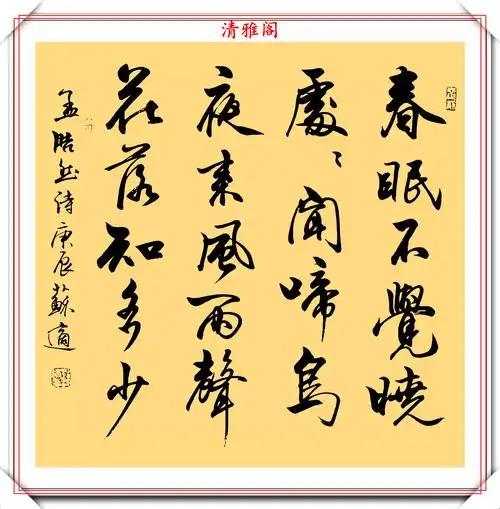 清雅阁
春眠不覺曉
處〻聞啼鳥
夜来風雨聲
花落知多少
孟浩然诗庚辰蘇適